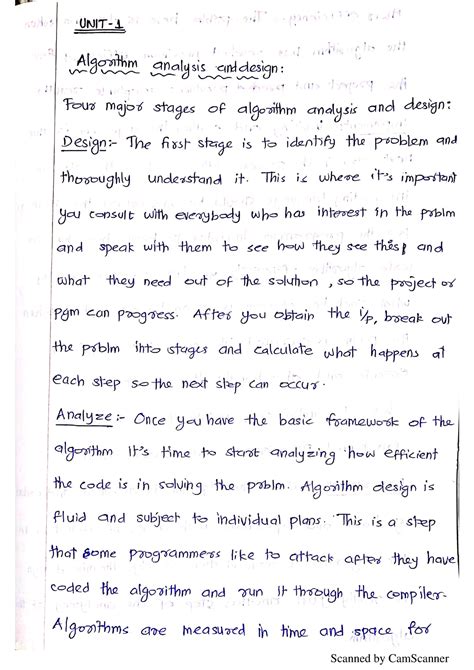 UNIT-1
Algorithm analysis and design:
Four major stages of algorithm analysis and design:
Design:- The first stage is to identify the problem and
thoroughly understand it. This is where it's important
you consult with everybody who has interest in the prblm
and speak with them to see how they see this, and
what they need out of the solution, so the project or
pgm can progress. After you obtain the i/p, break out
the prblm into stages and calculate what happens at
each step so the next step can occur.
Analyze:- Once you have the basic framework of the
algorithm it's time to start analyzing how efficient
the code is in solving the prblm. Algorithm design is
fluid and subject to individual plans. This is a step
that some programmers like to attack after they have
coded the algorithm and run it through the compiler.
Algorithms are measured in time and space for
Scanned by CamScanner